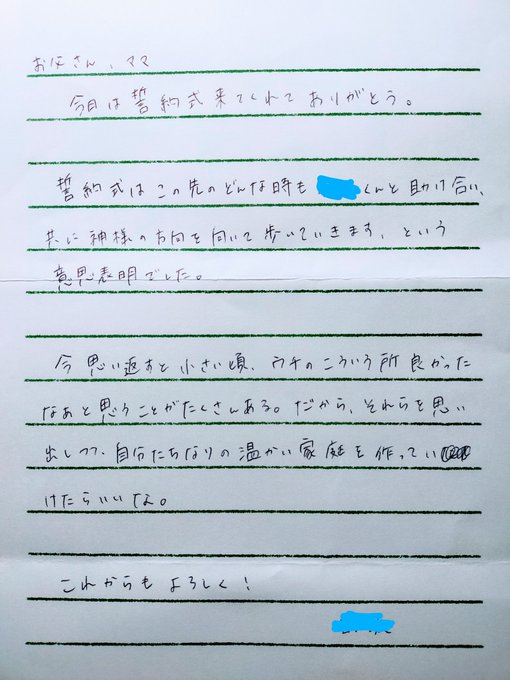 お父さん、ママ
今日は誓約式来てくれてありがとう。
誓約式はこの先のどんな時も くんと助け合い、
共に神様の方向を向いて歩いていきます、という
意思表明でした。
今思い返すと小さい頃、ウチのこういう所良かった
なぁと思うことがたくさんある。だから、それらを思い
出しつつ、自分たちなりの温かい家庭を作ってい
けたらいいな。
これからもよろしく!